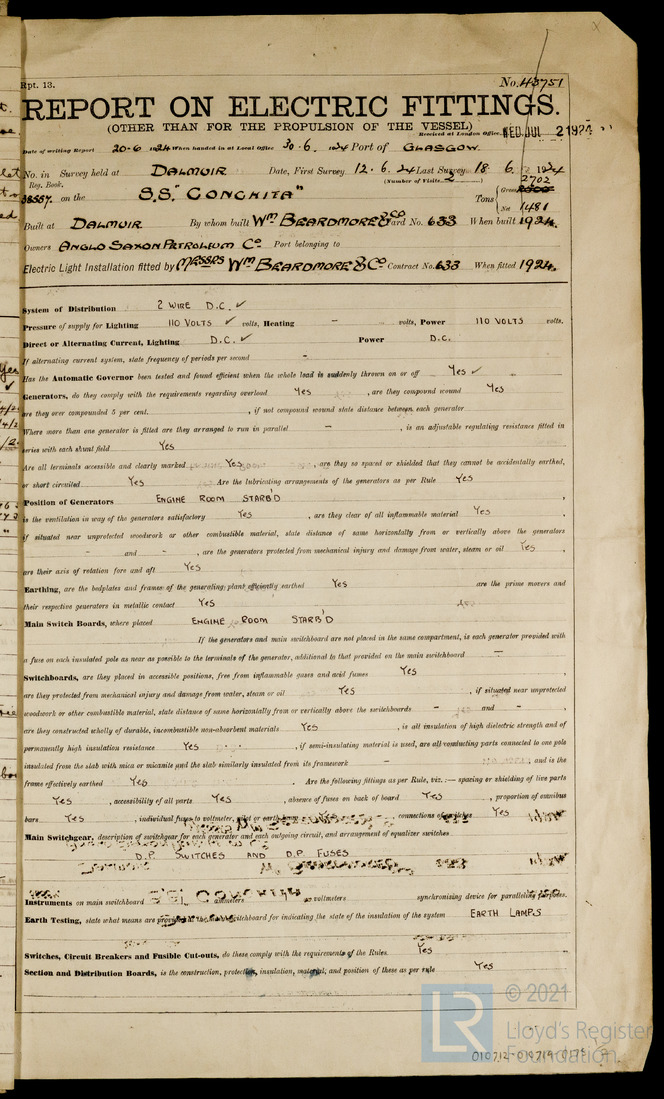 Rpt. 13.
No. 43751
REPORT ON ELECTRIC FITTINGS.
(OTHER THAN FOR THE PROPULSION OF THE VESSEL)
Received at London Office WED. JUL 2 1924
Date of writing Report 20-6 1924 When handed in at Local Office 30-6. 1924 Port of GLASGOW.
No. in Survey held at DALMUIR Date, First Survey 12.6.24 Last Survey 18 6. 1924
Reg. Book. (Number of Visits 2)
38557. on the S.S. "CONCHITA" Tons { Gross 2702
Net 1481
Built at DALMUIR By whom built Wm BEARDMORE & Co Yard No. 633 When built 1924.
Owners ANGLO SAXON PETROLEUM Co Port belonging to
Electric Light Installation fitted by MESSRS Wm BEARDMORE & Co Contract No. 633 When fitted 1924.
System of Distribution 2 WIRE D.C. ✓
Pressure of supply for Lighting 110 VOLTS ✓ volts, Heating - volts, Power 110 VOLTS volts.
Direct or Alternating Current, Lighting D.C. ✓ Power D.C.
If alternating current system, state frequency of periods per second -
Has the Automatic Governor been tested and found efficient when the whole load is suddenly thrown on or off Yes ✓
Generators, do they comply with the requirements regarding overload Yes , are they compound wound Yes
are they over compounded 5 per cent. , if not compound wound state distance between each generator
Where more than one generator is fitted are they arranged to run in parallel - , is an adjustable regulating resistance fitted in
series with each shunt field Yes
Are all terminals accessible and clearly marked Yes , are they so spaced or shielded that they cannot be accidentally earthed,
or short circuited Yes Are the lubricating arrangements of the generators as per Rule Yes
Position of Generators ENGINE ROOM STARB'D ,
is the ventilation in way of the generators satisfactory Yes , are they clear of all inflammable material Yes ,
if situated near unprotected woodwork or other combustible material, state distance of same horizontally from or vertically above the generators
- and - , are the generators protected from mechanical injury and damage from water, steam or oil Yes ,
are their axis of rotation fore and aft Yes
Earthing, are the bedplates and frames of the generating plant efficiently earthed Yes are the prime movers and
their respective generators in metallic contact Yes
Main Switch Boards, where placed ENGINE ROOM STARB'D
If the generators and main switchboard are not placed in the same compartment, is each generator provided with
a fuse on each insulated pole as near as possible to the terminals of the generator, additional to that provided on the main switchboard -
Switchboards, are they placed in accessible positions, free from inflammable gases and acid fumes Yes ,
are they protected from mechanical injury and damage from water, steam or oil Yes , if situated near unprotected
woodwork or other combustible material, state distance of same horizontally from or vertically above the switchboards - and - ,
are they constructed wholly of durable, incombustible non-absorbent materials Yes , is all insulation of high dielectric strength and of
permanently high insulation resistance Yes , if semi-insulating material is used, are all conducting parts connected to one pole
insulated from the slab with mica or micanite and the slab similarly insulated from its framework - and is the
frame effectively earthed Yes . Are the following fittings as per Rule, viz.:— spacing or shielding of live parts
Yes , accessibility of all parts Yes , absence of fuses on back of board Yes , proportion of omnibus
bars Yes , individual fuses to voltmeter, pilot or earth lamp , connections of switches Yes
Main Switchgear, description of switchgear for each generator and each outgoing circuit, and arrangement of equalizer switches
D.P. SWITCHES AND D.P. FUSES
Instruments on main switchboard ammeters voltmeters synchronising device for paralleling purposes.
Earth Testing, state what means are provided at the main switchboard for indicating the state of the insulation of the system EARTH LAMPS
Switches, Circuit Breakers and Fusible Cut-outs, do these comply with the requirements of the Rules Yes
Section and Distribution Boards, is the construction, protection, insulation, material, and position of these as per rule Yes
© 2021
LR
Lloyd's Register
Foundation